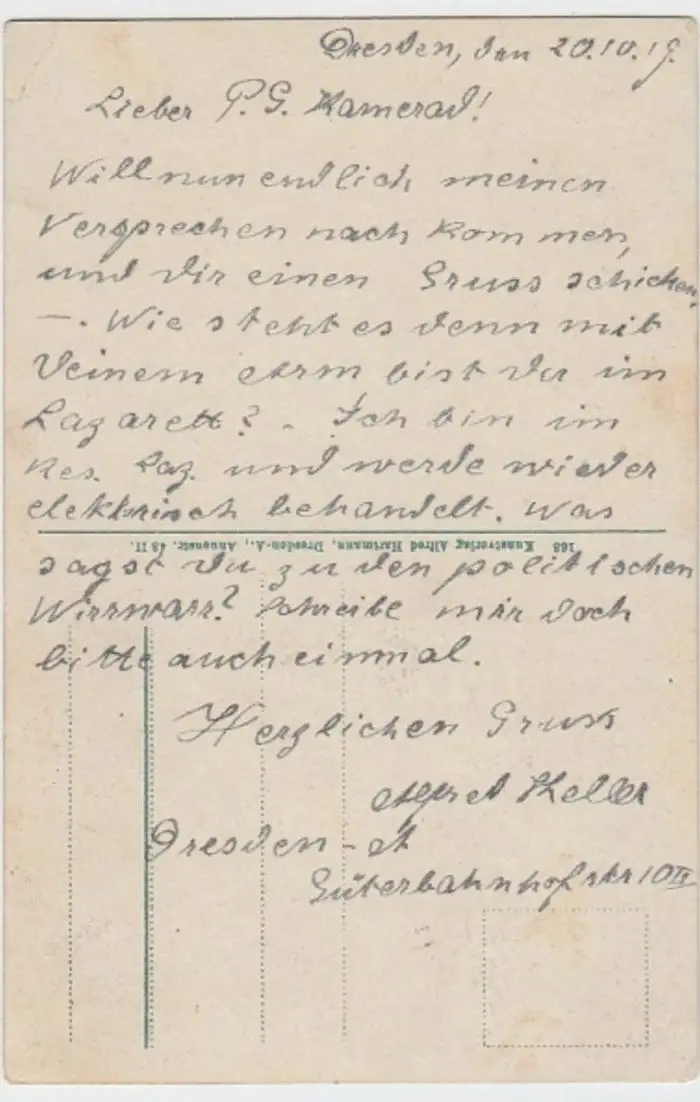 Dresden, den 20.10.19.
Lieber P. G. Kamerad!
Will nun endlich meinen
Versprechen nach kommen,
und dir einen Gruss schicken.
—. Wie steht es denn mit
Deinem Arm bist du im
Lazarett? - Ich bin im
Res. Laz. und werde wieder
elektrisch behandelt. Was
168 Kunstverlag Alfred Hartmann, Dresden-A., Annenstr. 48 II.
sagst du zu den politischen
Wirrwarr? Schreibe mir doch
bitte auch einmal.
Herzlichen Gruss
Alfred Keller
Dresden - A
Güterbahnhofstr 10 II